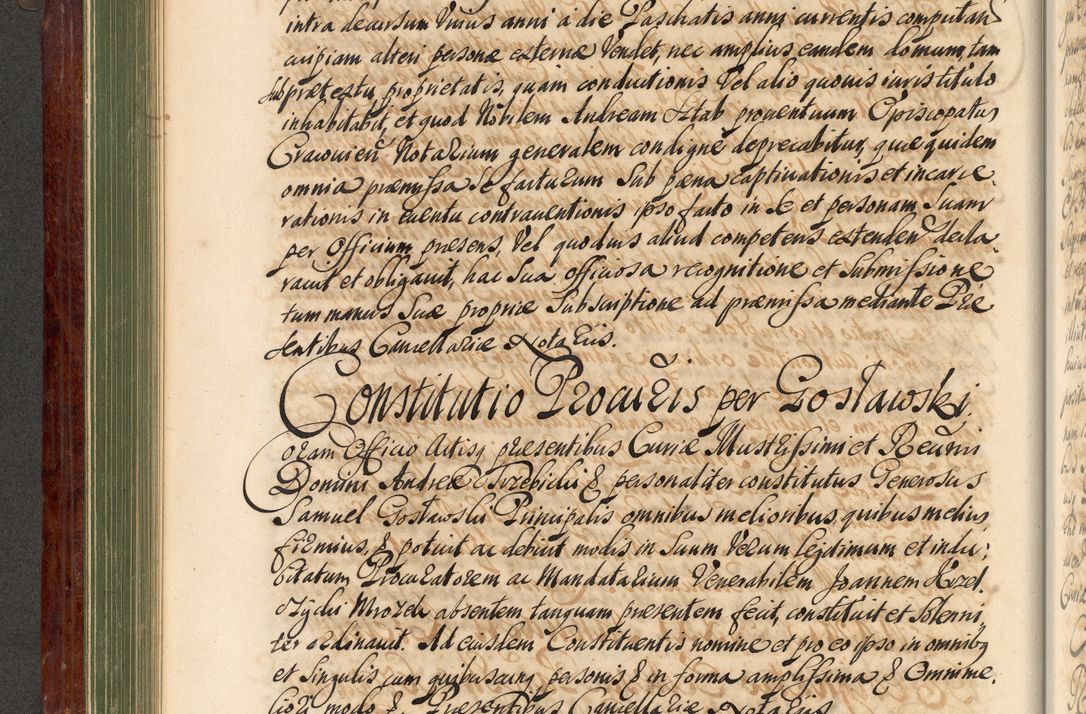 intra decursum Unius anni a die Paschatis anni currentis computan
cuipiam alteri personæ externæ Vendet, nec amplius eandem domum, tam
sub prætextu proprietatis, quam conductionis Vel alio quouis iuris titulo
inhabitabit, et quod Nobilem Andream Stab prouentuum Episcopatus
Cracouien Notarium generalem condignè deprecabitur, quæ quidem
omnia præmissa se facturum sub pœna captiuationis et incarce-
rationis in euentu contrauentionis ipso facto in se et personam suam
per Officium præsens, Vel quoduis aliud competens extenden decla-
rauit et obligauit, hac sua officiosa recognitione et submissione
tum manus suæ propriæ subscriptione ad præmissa mediante Præ-
sentibus Cancellariæ Notariis.
Constitutio Procuris per Gosławski.
Coram Officio Actisq præsentibus Curiæ Illustrissimi et Reumi
Domini Andreæ Trzebicki & personaliter constitutus Generosus
Samuel Gosławski Principalis omnibus melioribus, quibus melius,
firmius, & potuit ac debuit modis in suum Verum legitimum et indu-
bitatum Procuratorem ac Mandatarium Venerabilem Joannem Krzel.
Mrozek absentem tanquam præsentem fecit, constituit et solenni-
ter ordinauit. Ad eiusdem Constituentis nomine et pro eo ipso in omnibq
et singulis cum quibuscunq personis & in forma amplissima & Omni me-
liori modo & Præsentibus Cancellariæ Notariis